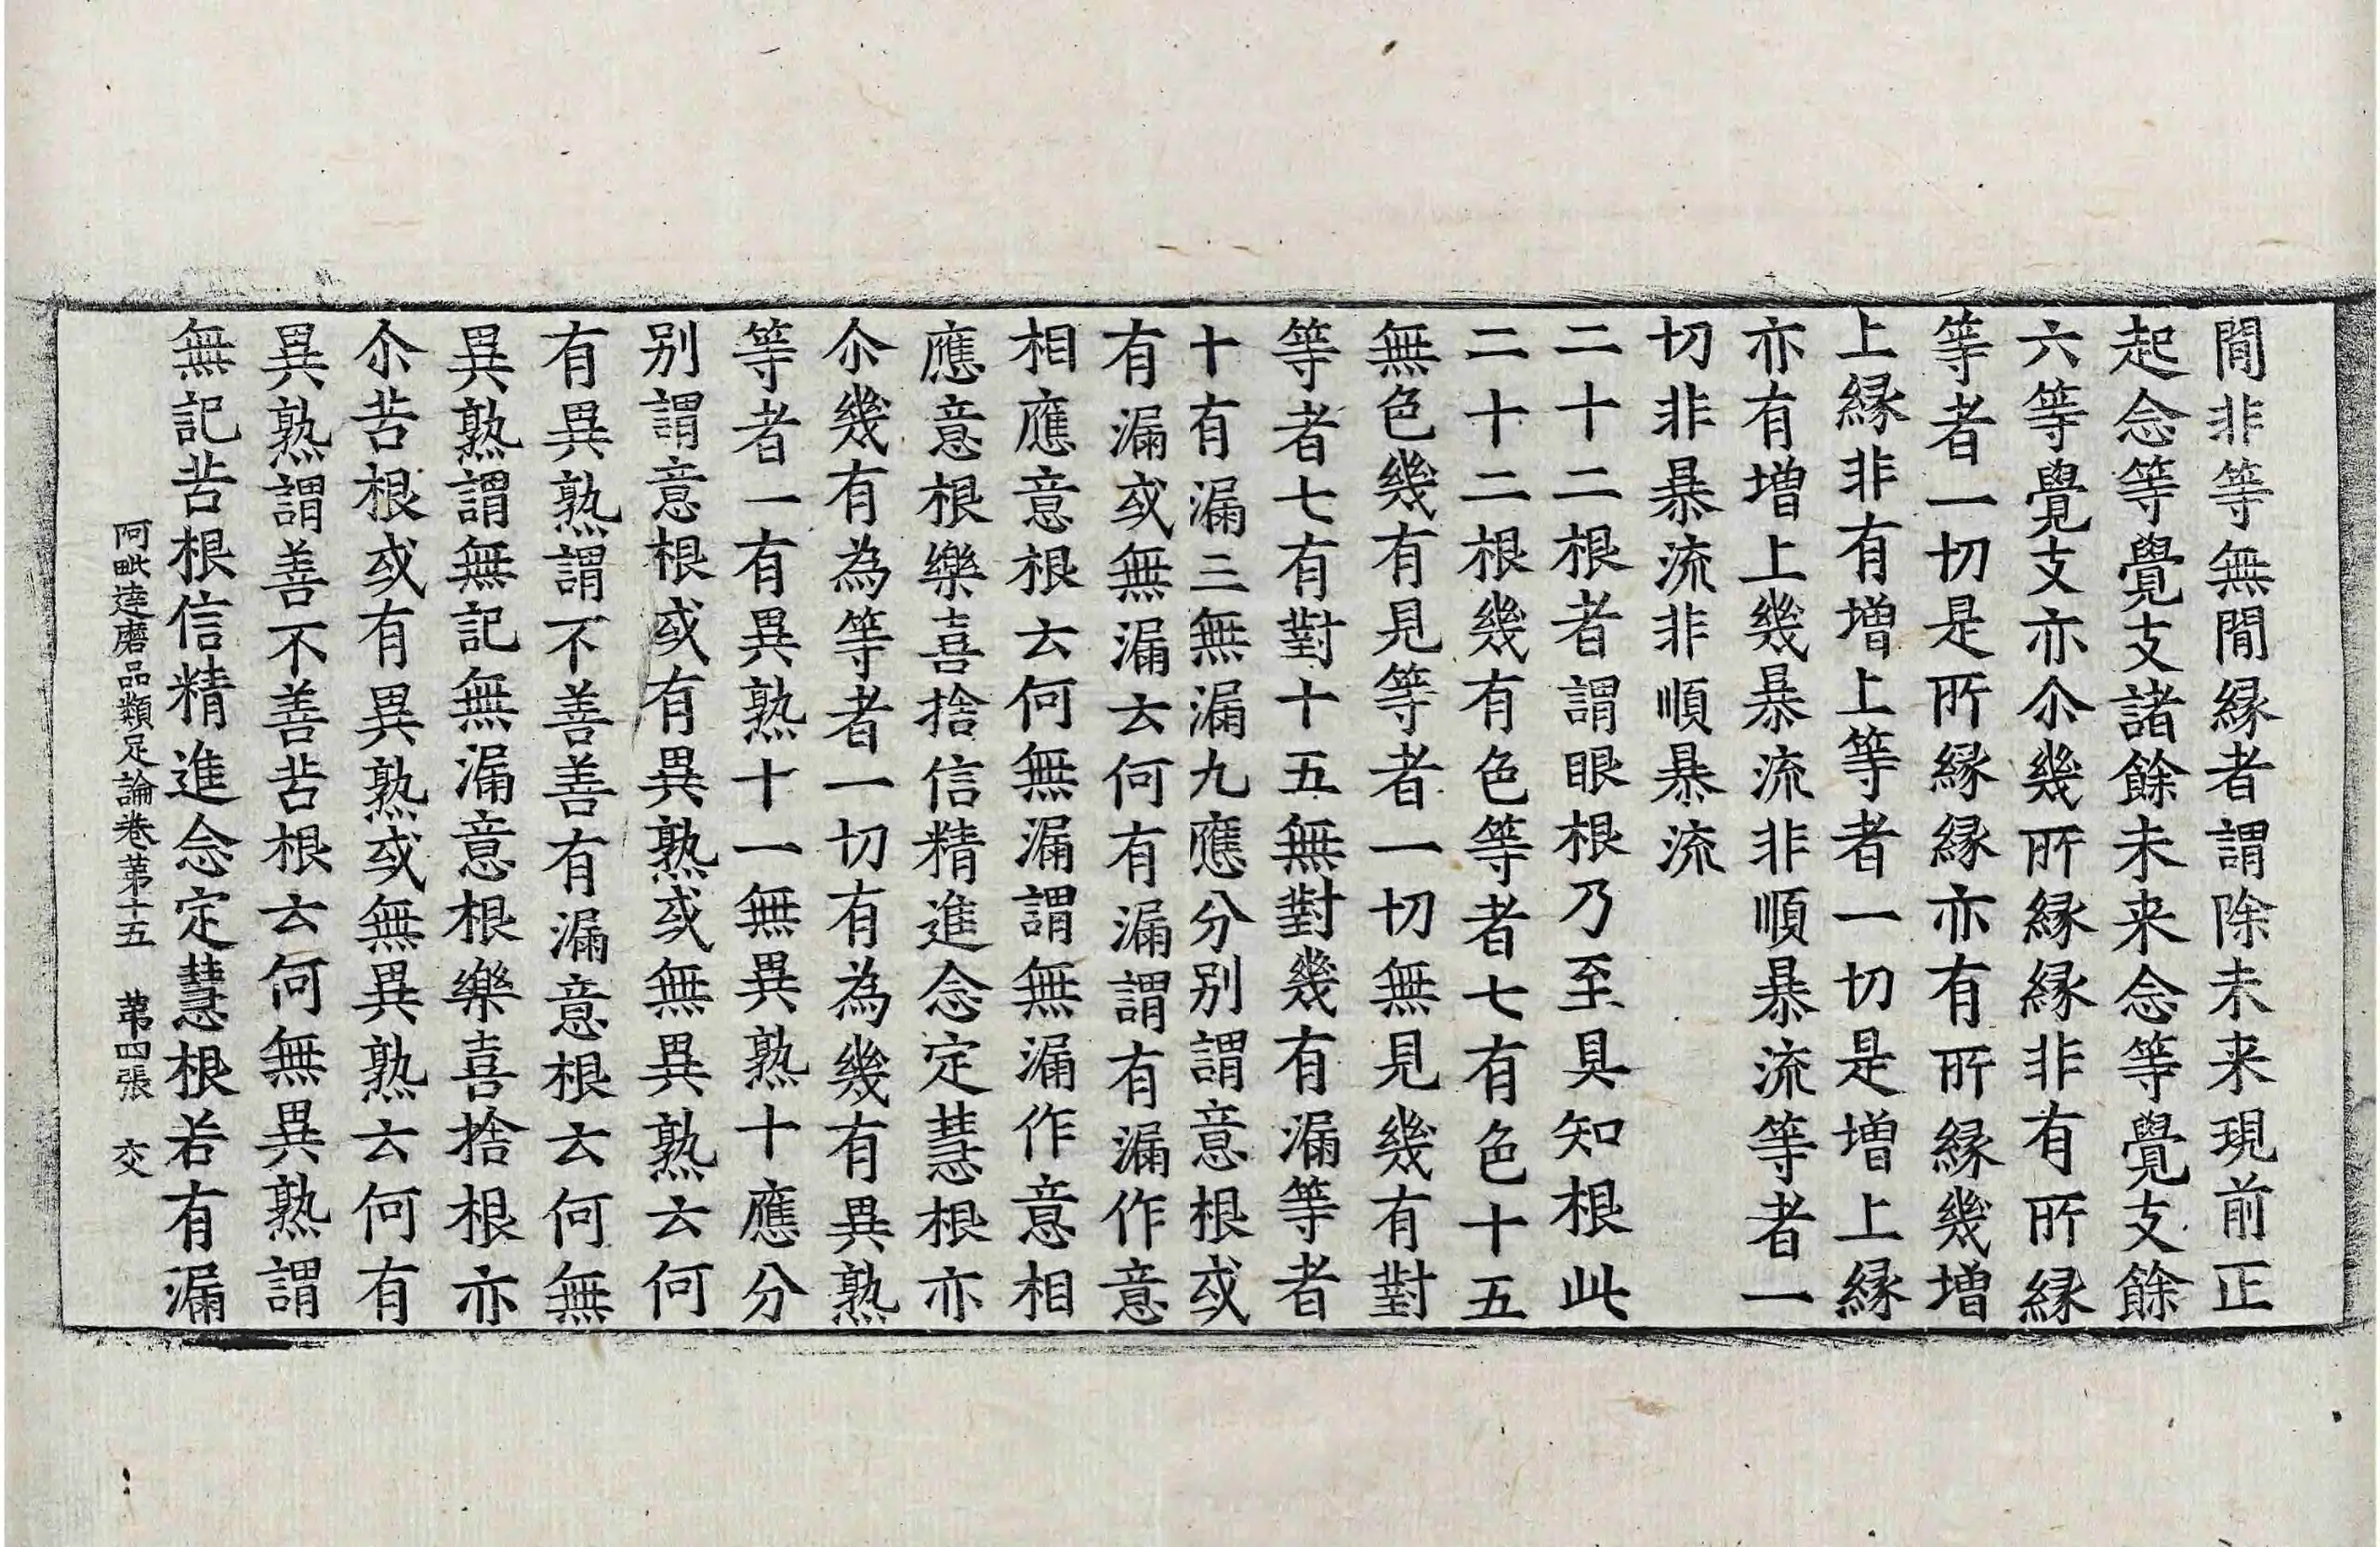 間非等無間縁者謂除未来現前正
起念等覺支諸餘未来念等覺支餘
六等覺支亦尒幾所縁縁非有所縁
等者一切是所縁縁亦有所縁幾增
上縁非有增上等者一切是增上縁
亦有增上幾暴流非順暴流等者一
切非暴流非順暴流
二十二根者謂眼根乃至具知根此
二十二根幾有色等者七有色十五
無色幾有見等者一切無見幾有對
等者七有對十五無對幾有漏等者
十有漏三無漏九應分別謂意根或
有漏或無漏云何有漏謂有漏作意
相應意根云何無漏謂無漏作意相
應意根樂喜捨信精進念定慧根亦
尒幾有為等者一切有為幾有異熟
等者一有異熟十一無異熟十應分
別謂意根或有異熟或無異熟云何
有異熟謂不善善有漏意根云何無
異熟謂無記無漏意根樂喜捨根亦
尒苦根或有異熟或無異熟云何有
異熟謂善不善苦根云何無異熟謂
無記苦根信精進念定慧根若有漏
阿毗達磨品類足論卷苐十五 苐四張 交